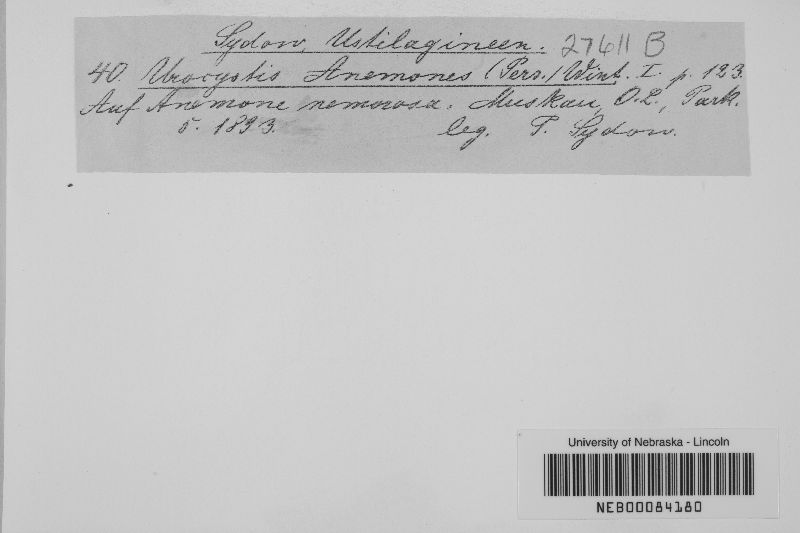 Sydow, Ustilagineen. 27611 B
40. Urocystis Anemones (Pers.) Wint. I. p. 123.
Auf Anemone nemorosa. Muskau, O.L., Park.
5. 1893. leg. P. Sydow.
University of Nebraska - Lincoln
NEB00084180